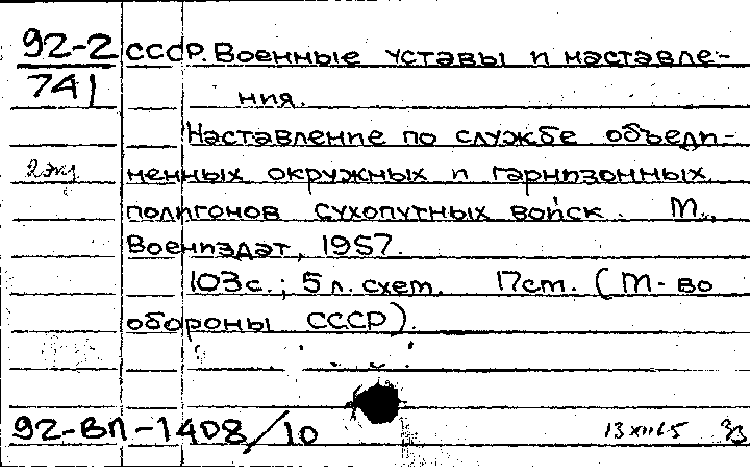 92-2 СССР. Военные уставы и наставле-
741 ния.
Наставление по службе объеди-
2 экз ненных окружных и гарнизонных
полигонов сухопутных войск. М.,
Воениздат, 1957.
103с.; 5л. схем. 17см. (М-во
обороны СССР).
92-ВП-1408/10